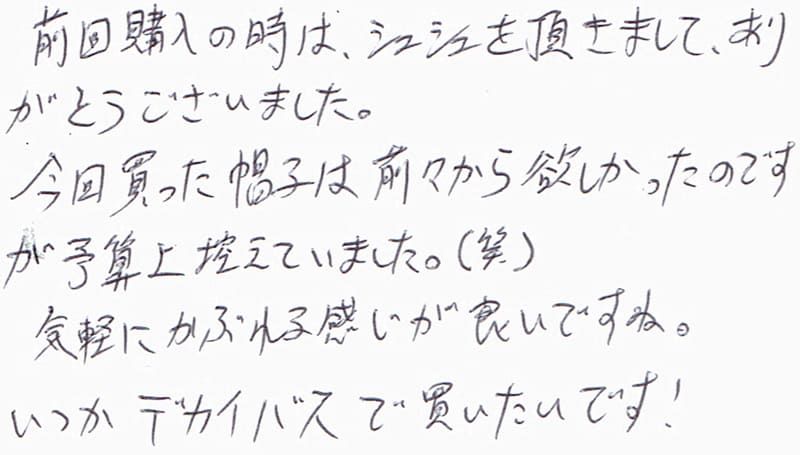 前回購入の時は、シュシュを頂きまして、あり
がとうございました。
今回買った帽子は前々から欲しかったのです
が予算上控えていました。(笑)
気軽にかぶれる感じが良いですね。
いつかデカイバスで買いたいです!